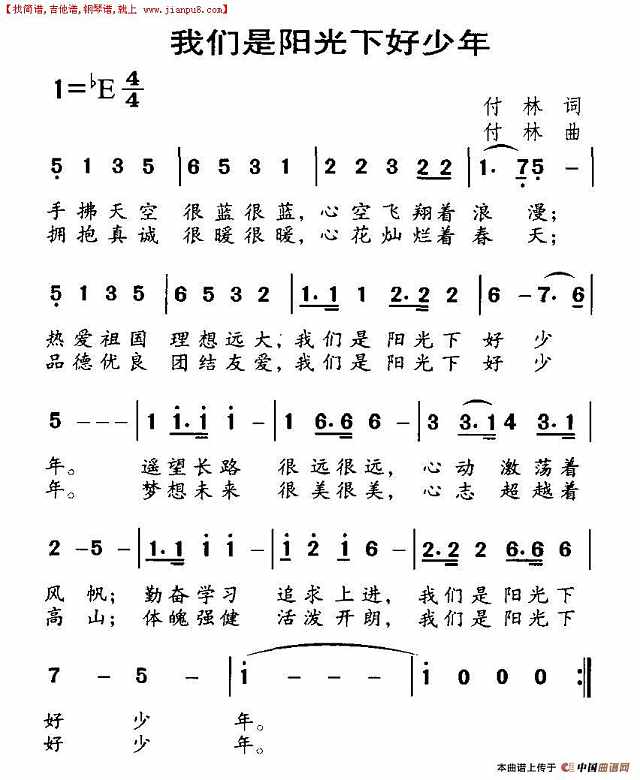 【找简谱,吉他谱,钢琴谱,就上 www.jianpu8.com】
我们是阳光下好少年
1=♭E 4/4
付 林 词
付 林 曲
5 1 3 5 | 6 5 3 1 | 2 2 3 2 2 | 1· 7 5 - |
手拂天空 很蓝很蓝,心空飞翔着 浪 漫;
拥抱真诚 很暖很暖,心花灿烂着 春 天;
5 1 3 5 | 6 5 3 2 | 1· 1 2· 2 2 | 6 - 7· 6 |
热爱祖国 理想远大,我们是 阳光下 好 少
品德优良 团结友爱,我们是 阳光下 好 少
5 - - - | 1 1· 1 1 - | 1 6· 6 6 - | 3 3· 1 4 3· 1 |
年。 遥望长路 很远很远, 心动 激荡着
年。 梦想未来 很美很美, 心志 超越着
2 - 5 - | 1· 1 1 6 - | 1 2 1 6 | 2· 2 2 6· 6 6 |
风 帆; 勤奋学习 追求上进, 我们是 阳光下
高 山; 体魄强健 活泼开朗, 我们是 阳光下
7 - 5 - | 1 - - - | 1 0 0 0 :|
好 少 年。
好 少 年。
本曲谱上传于 中国曲谱网